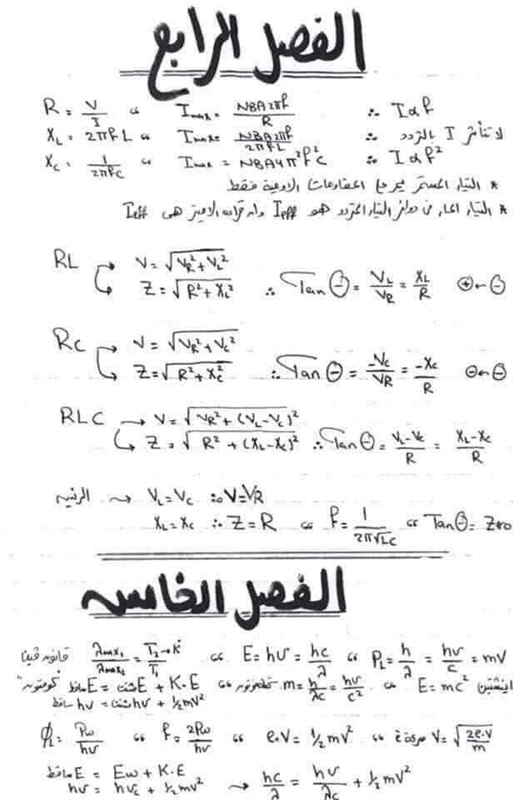 الفصل الرابع
R = V/I " Imax = NBA2πf/R ∴ I α f
XL = 2πfL " Imax = NBA2πf/2πfL ∴ لا تتأثر I بالتردد
Xc = 1/2πfc " Imax = NBA4π²f²c ∴ I α f²
* التيار المستمر يمر في المقاومات الاومية فقط
* التيار المار في دوائر التيار المتردد هو Ieff وان قراءة الاميتر هى Ieff
RL → V = √VR²+VL²
→ Z = √R²+XL² ∴ Tan θ = VL/VR = XL/R ⊕ ← θ
Rc → V = √VR²+Vc²
→ Z = √R²+Xc² ∴ Tan θ = -Vc/VR = -Xc/R ⊖ ← θ
RLC → V = √VR²+(VL-Vc)²
→ Z = √R²+(XL-Xc)² ∴ Tan θ = VL-Vc/R = XL-Xc/R
الرنين → VL=Vc ∴ V=VR
XL=Xc ∴ Z=R " f = 1/2π√LC " Tan θ = Zero
الفصل الخامس
قانون فين λmax1/λmax2 = T2→k/T1 " E = hυ = hc/λ " PL = h/λ = hυ/c = mV
اينشتين E = mc² " m = h/λc = hυ/c² " كومتون" ساقط E = مشتت E + K.E
ساقط hυ = مشتت hυ + 1/2 mV²
ϕL = Pw/hυ " F = 2Pw/hυ " e.V = 1/2 mV² " سرعة e V = √2e.V/m
ساقط E = Ew + K.E
hυ = hυc + 1/2 mV² → hc/λ = hυ/λc + 1/2 mV²